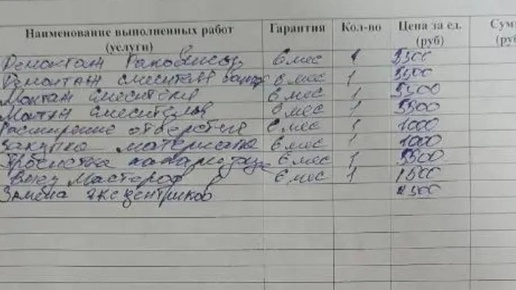 Наименование выполненных работ (услуги) Гарантия Кол-во Цена за ед. (руб) Сум (руб)
Демонтаж Раковины 6 мес 1 3500
Демонтаж смесителя 6 мес 1 3500
Монтаж смесителя 6 мес 1 5500
Монтаж смесителя 6 мес 1 5500
Расширение отверстие 6 мес 1 1000
Закупка материала 6 мес 1 1000
6 мес 1 5500
Выезд Мастера 6 мес 1 1500
Замена эксцентриков 4500